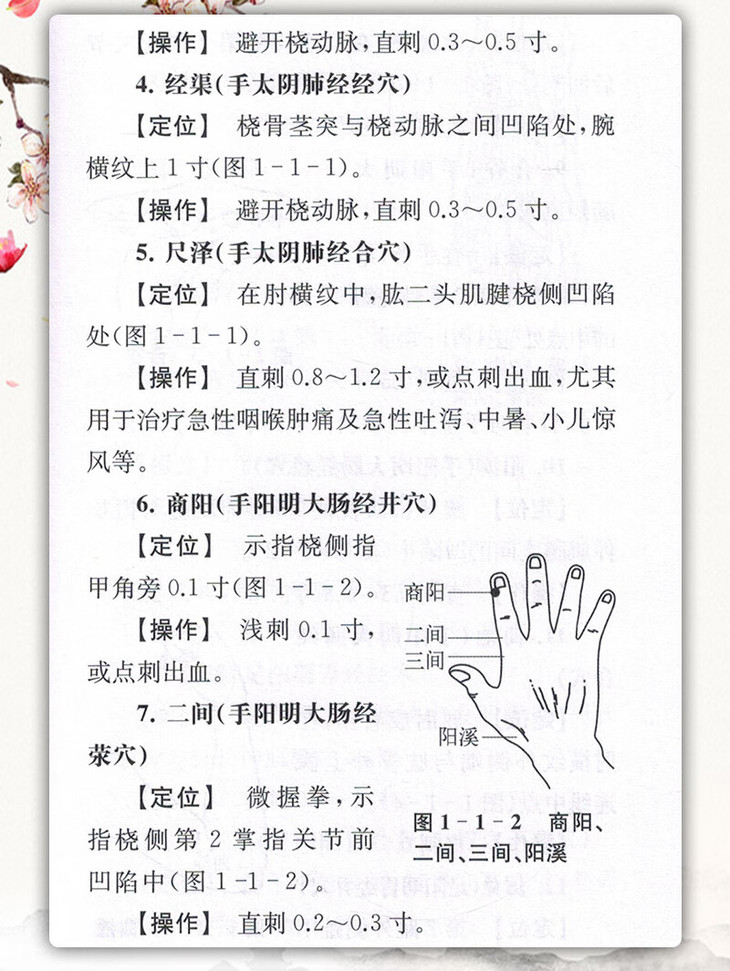 【操作】 避开桡动脉,直刺0.3~0.5寸。
4. 经渠(手太阴肺经经穴)
【定位】 桡骨茎突与桡动脉之间凹陷处,腕
横纹上1寸(图1-1-1)。
【操作】 避开桡动脉,直刺0.3~0.5寸。
5. 尺泽(手太阴肺经合穴)
【定位】 在肘横纹中,肱二头肌腱桡侧凹陷
处(图1-1-1)。
【操作】 直刺0.8~1.2寸,或点刺出血,尤其
用于治疗急性咽喉肿痛及急性吐泻、中暑、小儿惊
风等。
6. 商阳(手阳明大肠经井穴)
【定位】 示指桡侧指
甲角旁0.1寸(图1-1-2)。
【操作】 浅刺0.1寸,
或点刺出血。
7. 二间(手阳明大肠经
荥穴)
【定位】 微握拳,示
指桡侧第2掌指关节前
凹陷中(图1-1-2)。
【操作】 直刺0.2~0.3寸。
商阳
二间
三间
阳溪
图1-1-2 商阳、
二间、三间、阳溪